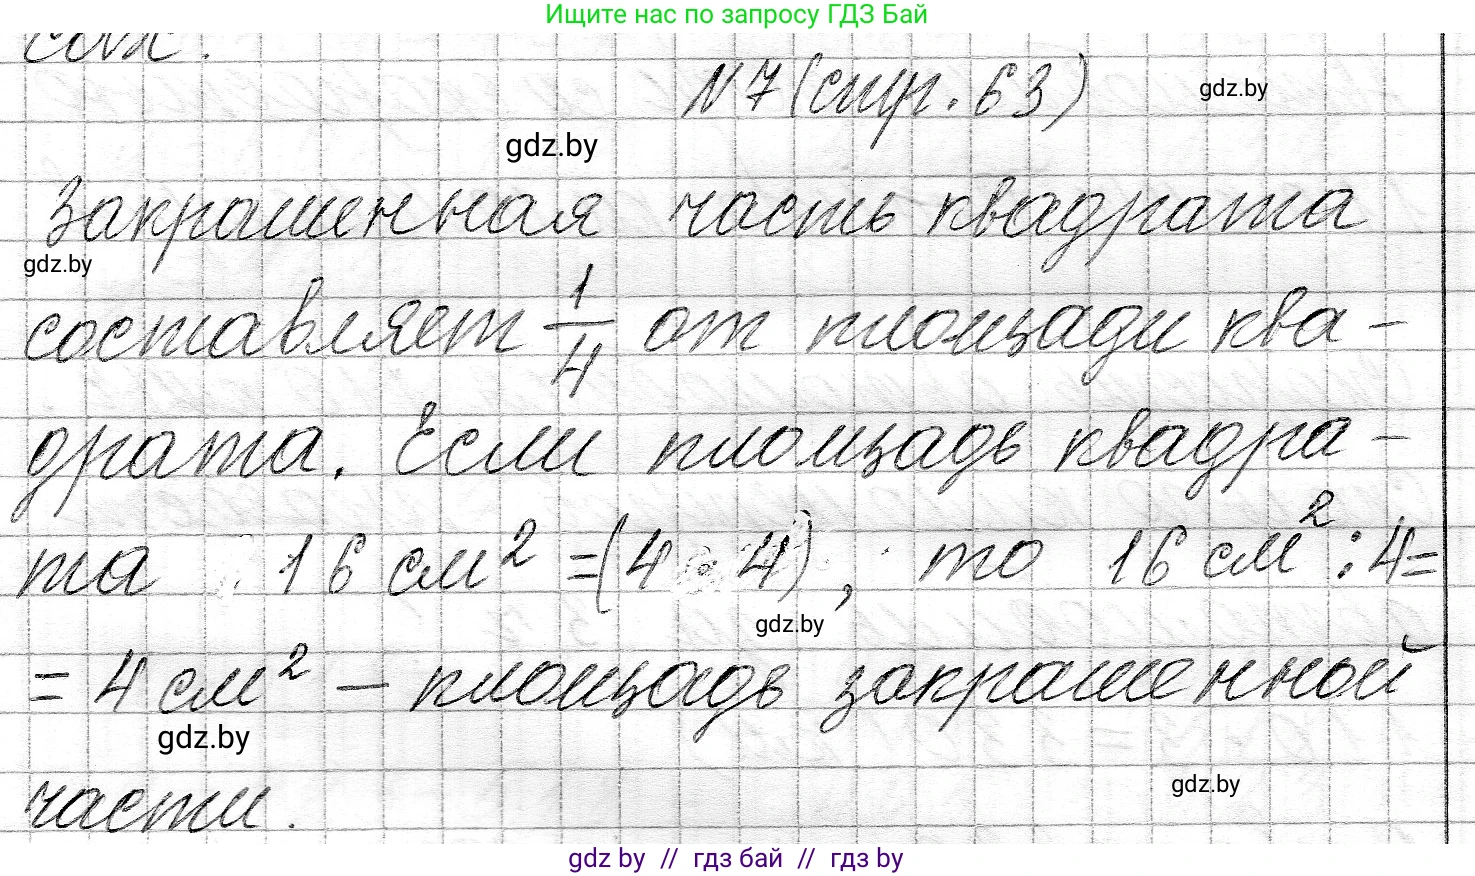 Ищите нас по запросу ГДЗ Бай
N 7 (стр. 63)
gdz.by
gdz.by
Закрашенная часть квадрата
gdz.by
составляет 1/4 от площади ква-
драта. Если площадь квадра-
та 16 см² = (4 · 4), то 16 см² : 4 =
gdz.by
= 4 см² – площадь закрашенной
gdz.by
gdz.by
части.
gdz by // гдз бай // гдз by